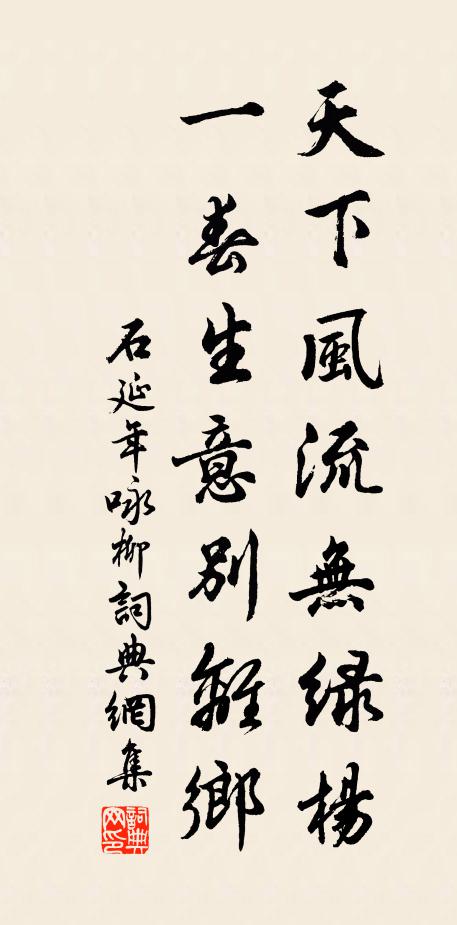 天下風流無緑楊
一春生意別離鄉
石延年咏柳詞典網集
詞典网印